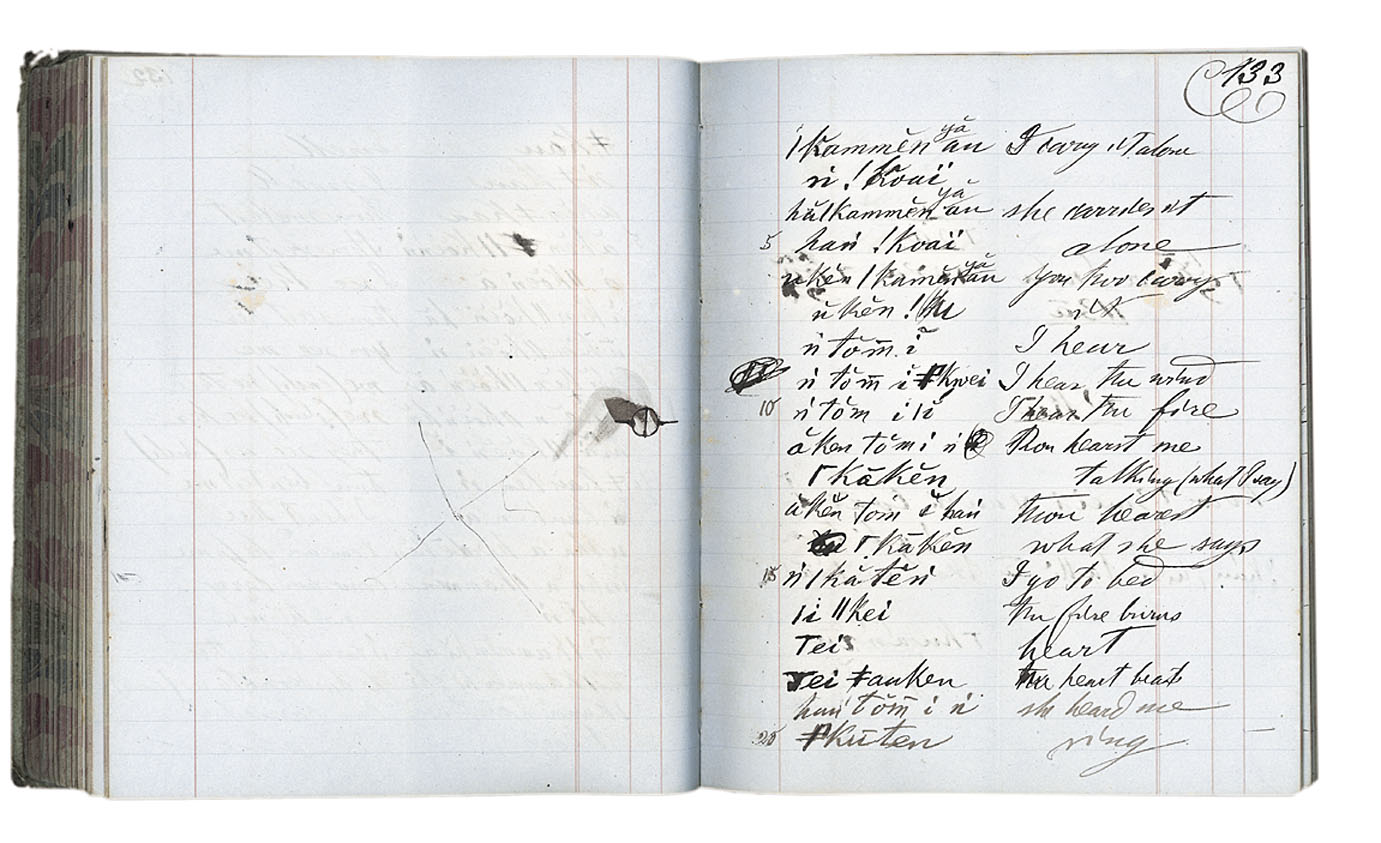 133
yā
|kammĕn au I carry it alone
ṅ !koaï
yā
hăṅ|kammĕn au she carries it
5 haṅ !koaï alone
yā
ŭkĕn |kamĕn au you two carry
ŭ kĕn ! it
ṅ tōm̄ ĭ I hear
ṅ tōm̄ ĭ ǂkwei I hear the wind
10 ṅ tōm i |i I hear the fire
ă ken tōm i ṅ Thou hearst me
kākĕn talking (what I say)
ă kĕn tom ĭ haṅ thou hearest
kākĕn what she says
15 ṅ |kā tĕṅ I go to bed
|i ǁkei the fire burns
Tei heart
Tei ǂauken the heart beats
haṅ tōm̄ i ṅ she heard me
20 ǂkūten ring